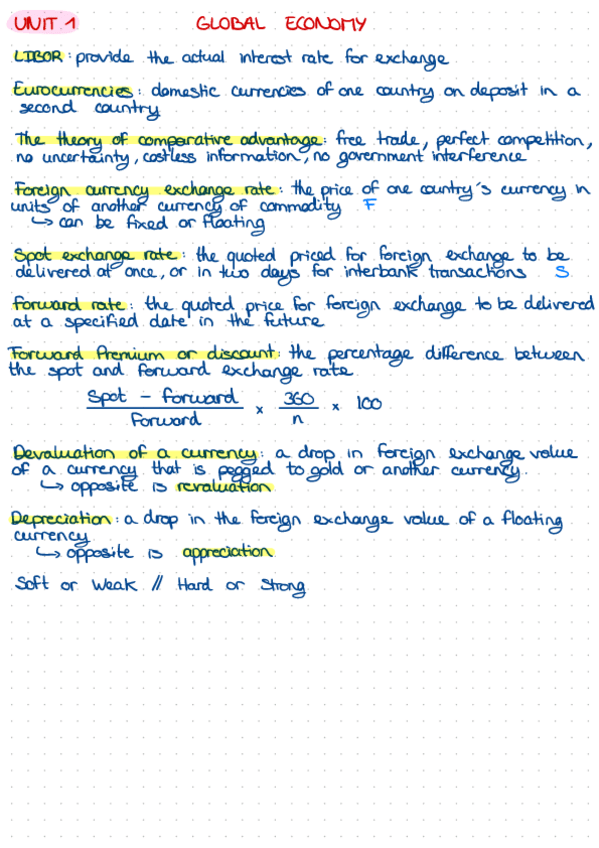 UNIT 1 GLOBAL ECONOMY
LIBOR: provide the actual interest rate for exchange
Eurocurrencies: domestic currencies of one country on deposit in a
second country
The theory of comparative advantage: free trade, perfect competition,
no uncertainty, costless information, no government interference
Foreign currency exchange rate: the price of one country's currency in
units of another currency of commodity F
↳ can be fixed or floating
Spot exchange rate: the quoted priced for foreign exchange to be
delivered at once, or in two days for interbank transactions S
Forward rate: the quoted price for foreign exchange to be delivered
at a specified date in the future
Forward Premium or discount: the percentage difference between
the spot and forward exchange rate
Spot - forward
Forward
× 360
n
× 100
Devaluation of a currency: a drop in foreign exchange value
of a currency that is pegged to gold or another currency.
↳ opposite is revaluation
Depreciation: a drop in the foreign exchange value of a floating
currency
↳ opposite is appreciation
Soft or Weak // Hard or Strong